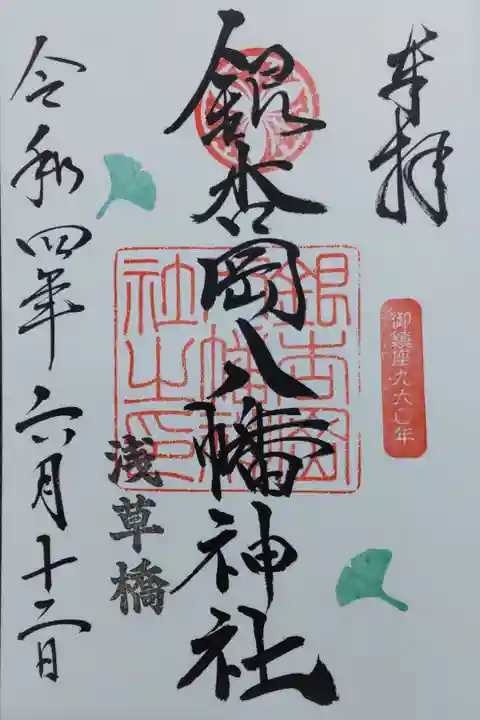 奉拝
御鎮座九六〇年
銀杏岡八幡神社
銀杏岡
八幡神
社之印
浅草橋
令和四年六月十二日